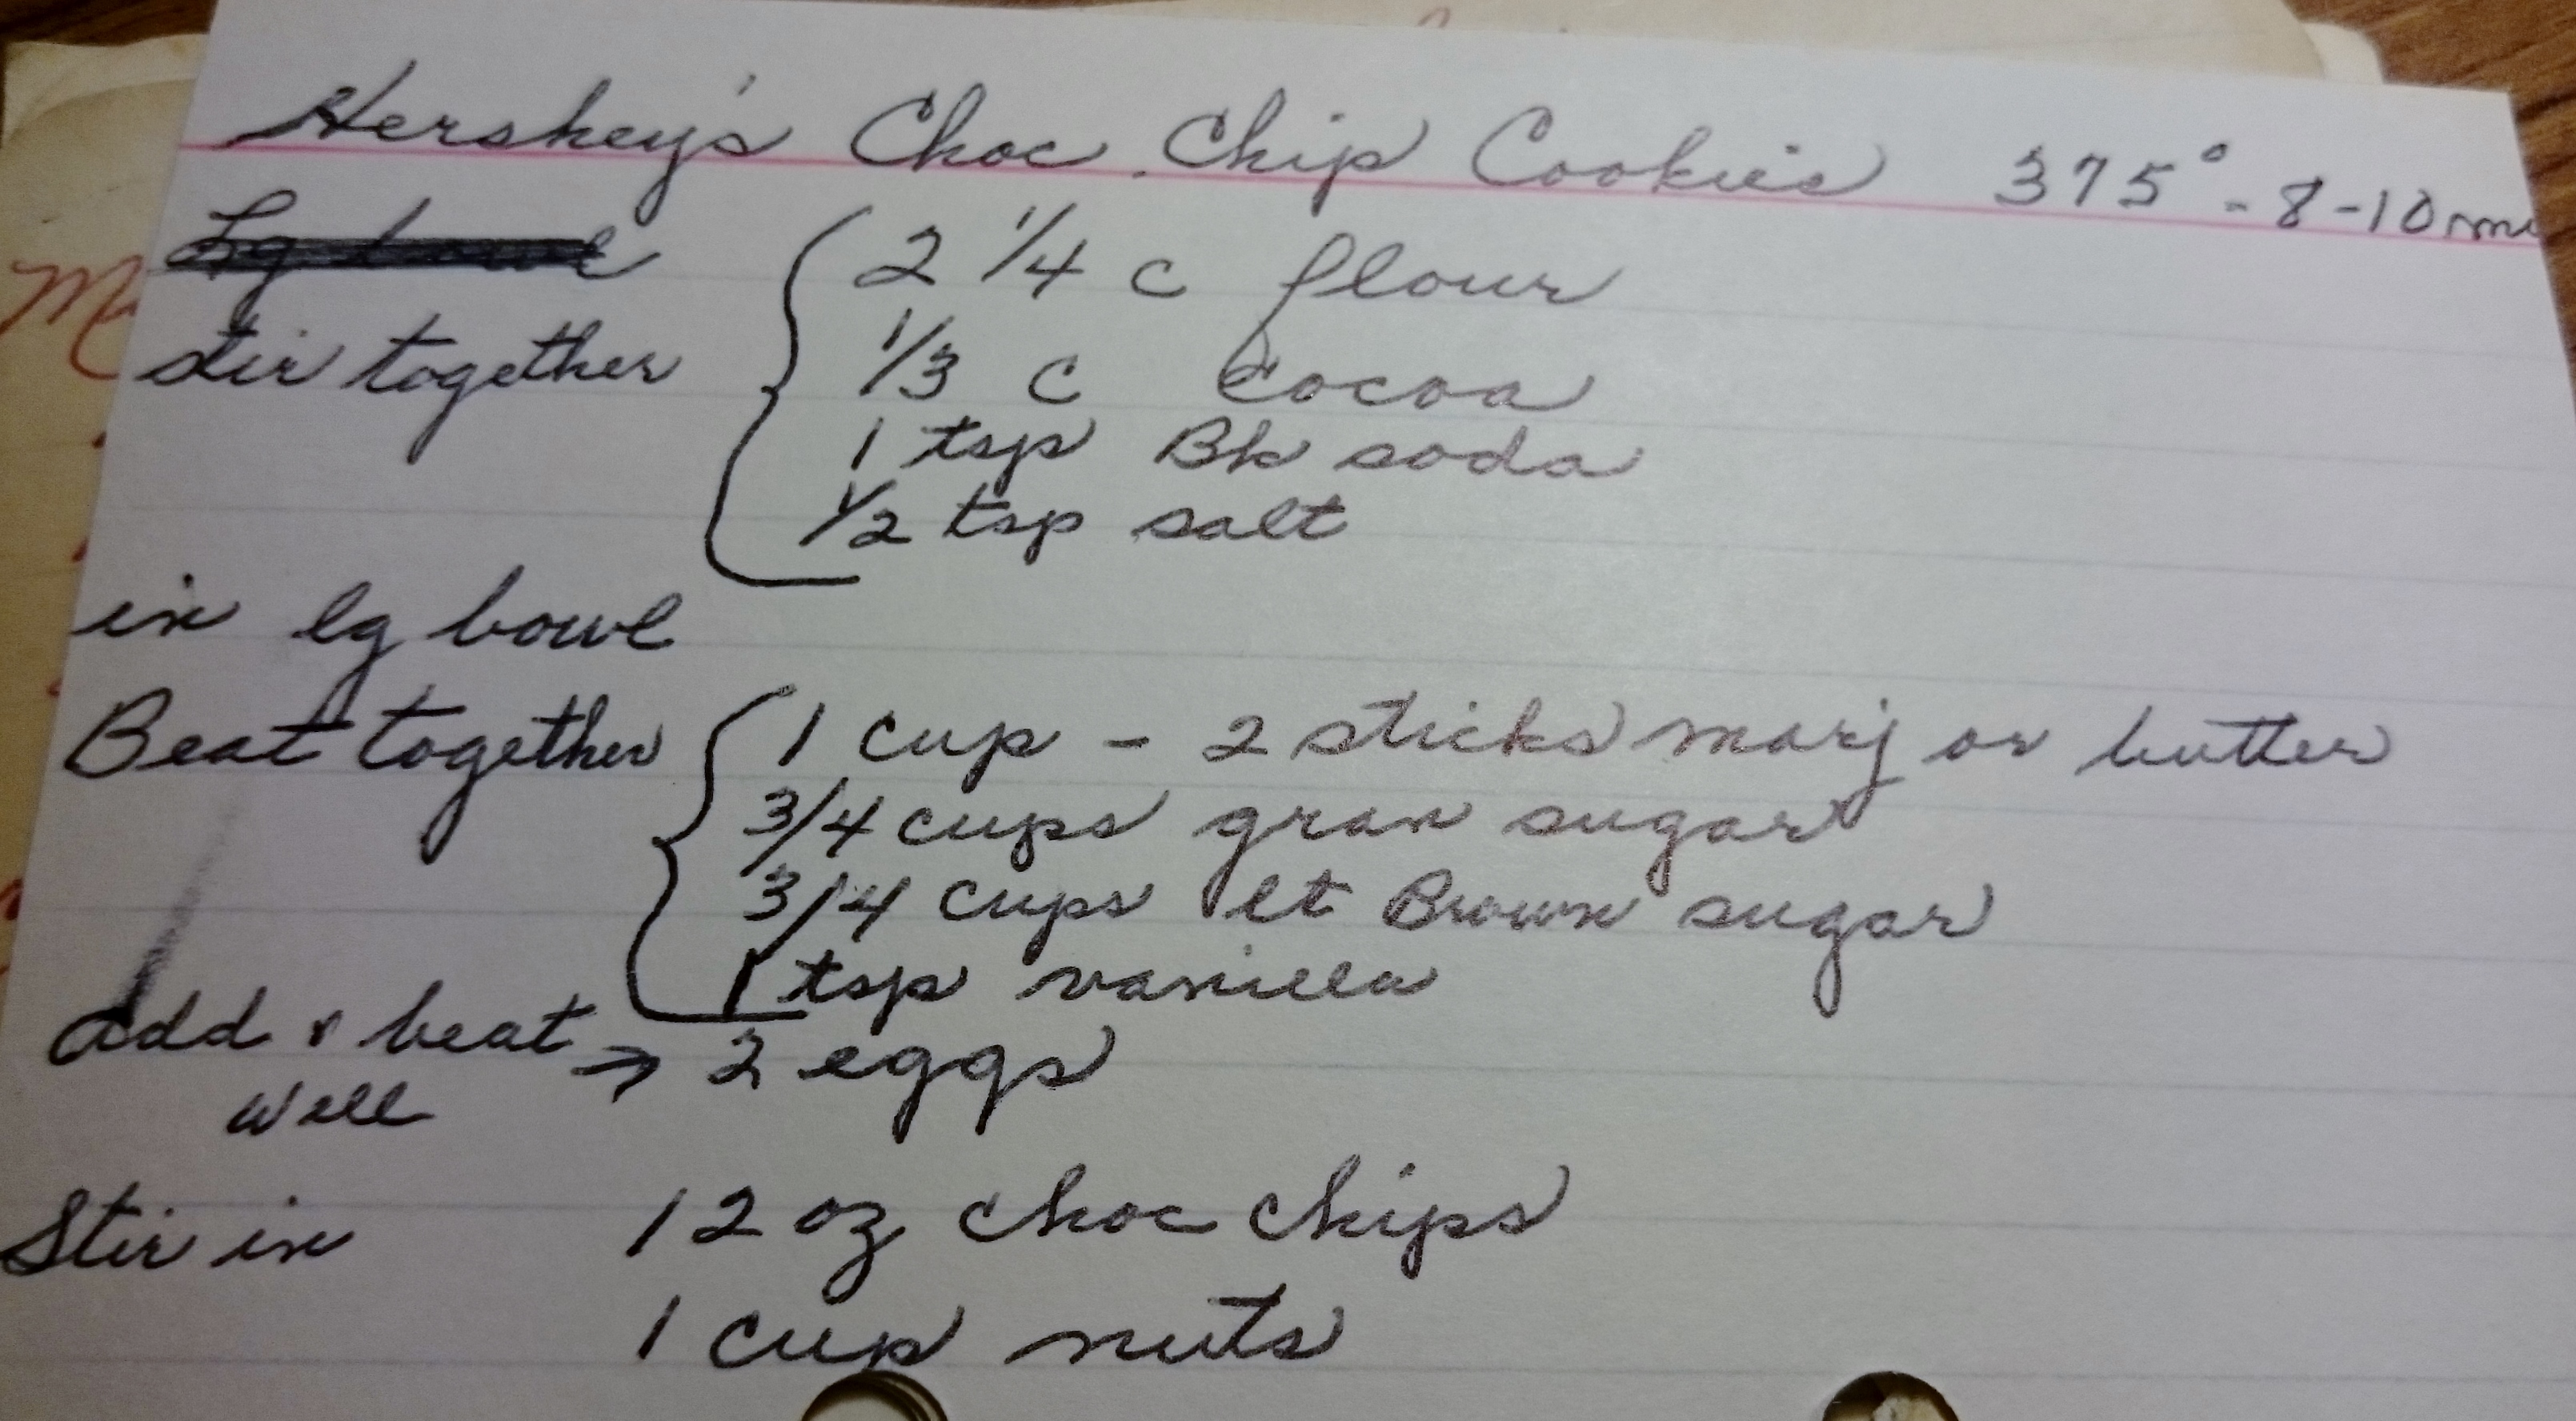 Hershey's Choc. Chip Cookies 375° - 8-10 m
Lg bowl
2 1/4 c flour
1/3 c cocoa
stir together
1 tsp Bk soda
1/2 tsp salt
in lg bowl
Beat together 1 cup - 2 sticks marj or butter
3/4 cups gran sugar
3/4 cups lt Brown sugar
1 tsp vanilla
add & beat → 2 eggs
well
Stir in 12 oz choc chips
1 cup nuts